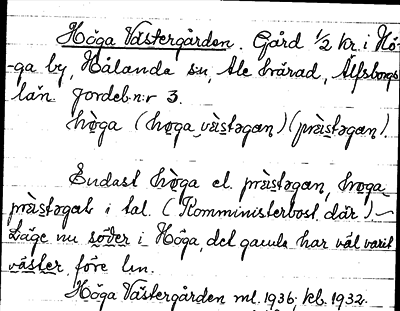 Höga Västergården. Gård 1/2 kr. i Hö-
-ga by, Hålanda sn, Ale härad, Älfsborgs
län Jordeb.n:r 3.
hòga (hòga vèistəgaɲ) (prèistəgaɲ).
Endast hòga el. prèistəgan, hòga
prèistəgaɫ i tal. (Komministerbost. där.)
Läge nu söder i Höga, det gamla har väl varit
väster, före l.sk.
Höga Västergården ml. 1936; kb. 1932.